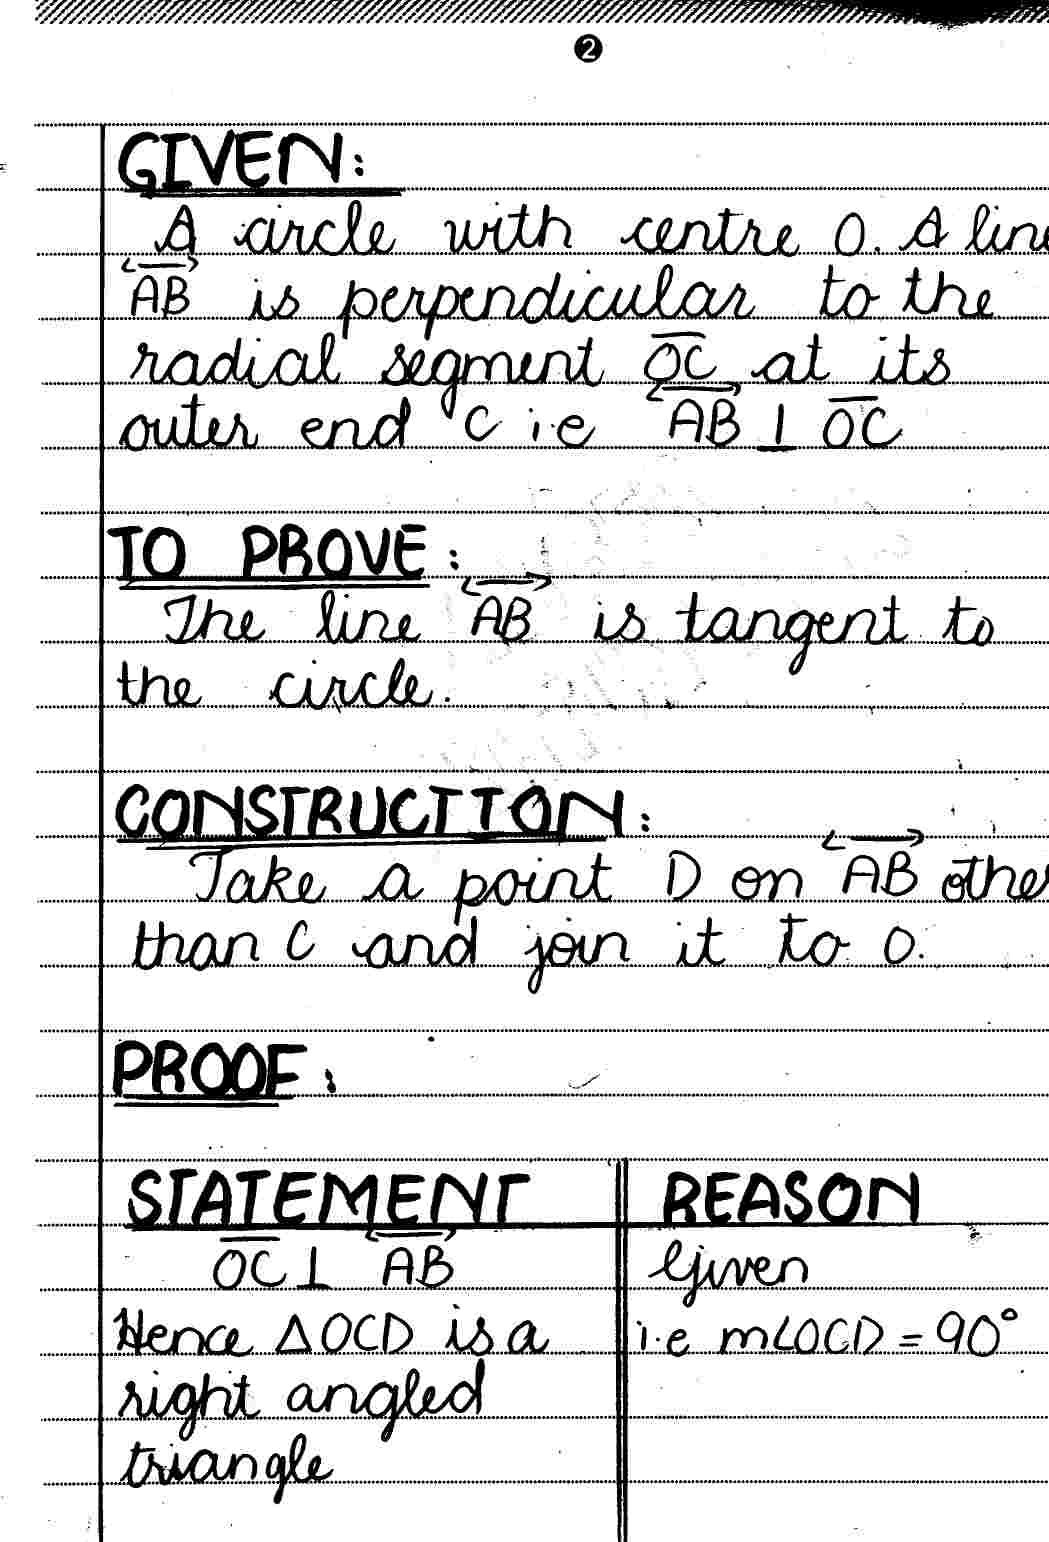 2
GIVEN:
A circle with centre O. A line
AB is perpendicular to the
radial segment OC at its
outer end C i.e AB ⊥ OC
TO PROVE:
The line AB is tangent to
the circle.
CONSTRUCTION:
Take a point D on AB othe
than C and join it to O.
PROOF:
STATEMENT REASON
OC ⊥ AB Given
Hence △OCD is a i.e m∠OCD = 90°
right angled
triangle